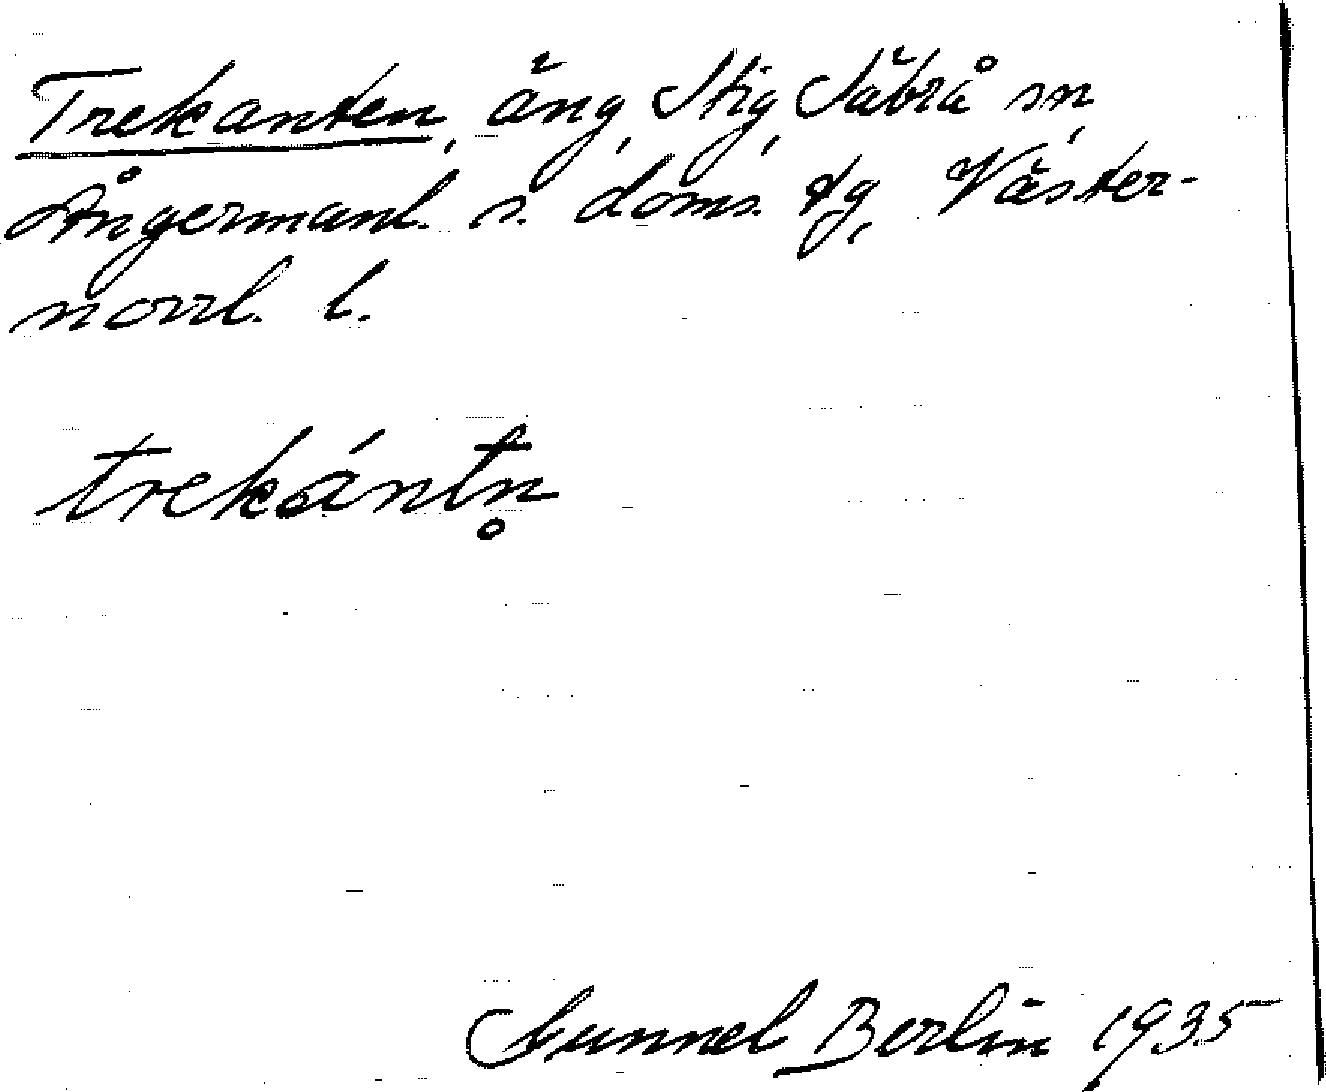 Trekanten, äng, Stig, Säbrå sn,
Ångermanl. s. doms. tg, Väster-
norrl. l.
trekántn̥
Gunnel Berlin 1935